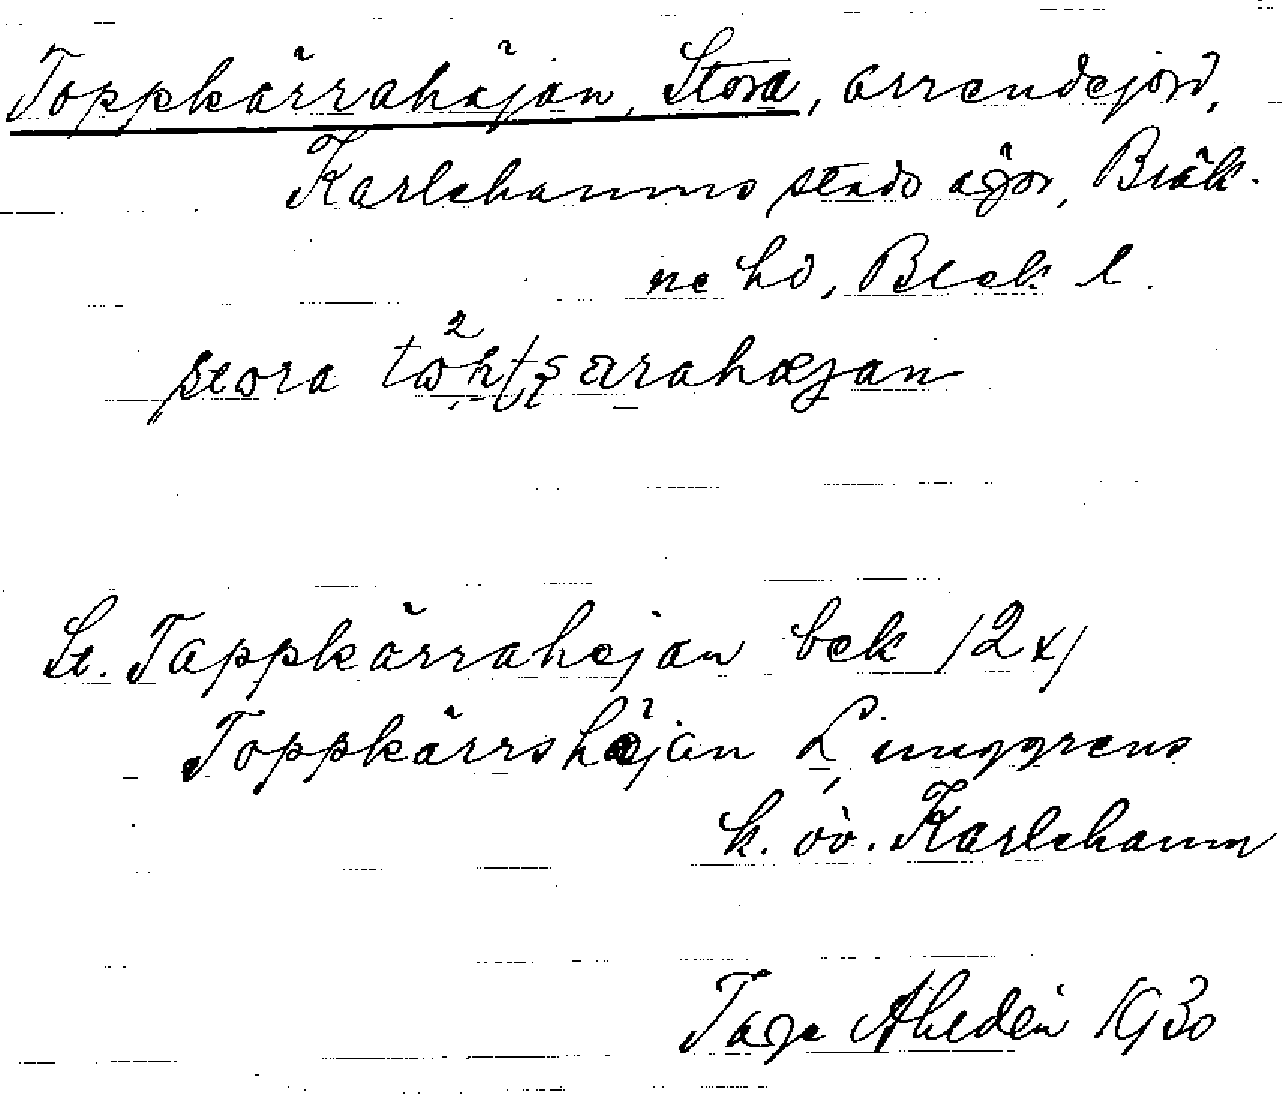 Toppkärrahäjan, Stora, arrendejord,
Karlshamns stads ägor, Bräk-
ne hd, Blek l.
stora
St. Tappkärrahejan bek /2x/
Toppkärrshäjan Ljunggrens
k. öv. Karlshamn
Tage Ahlden 1930